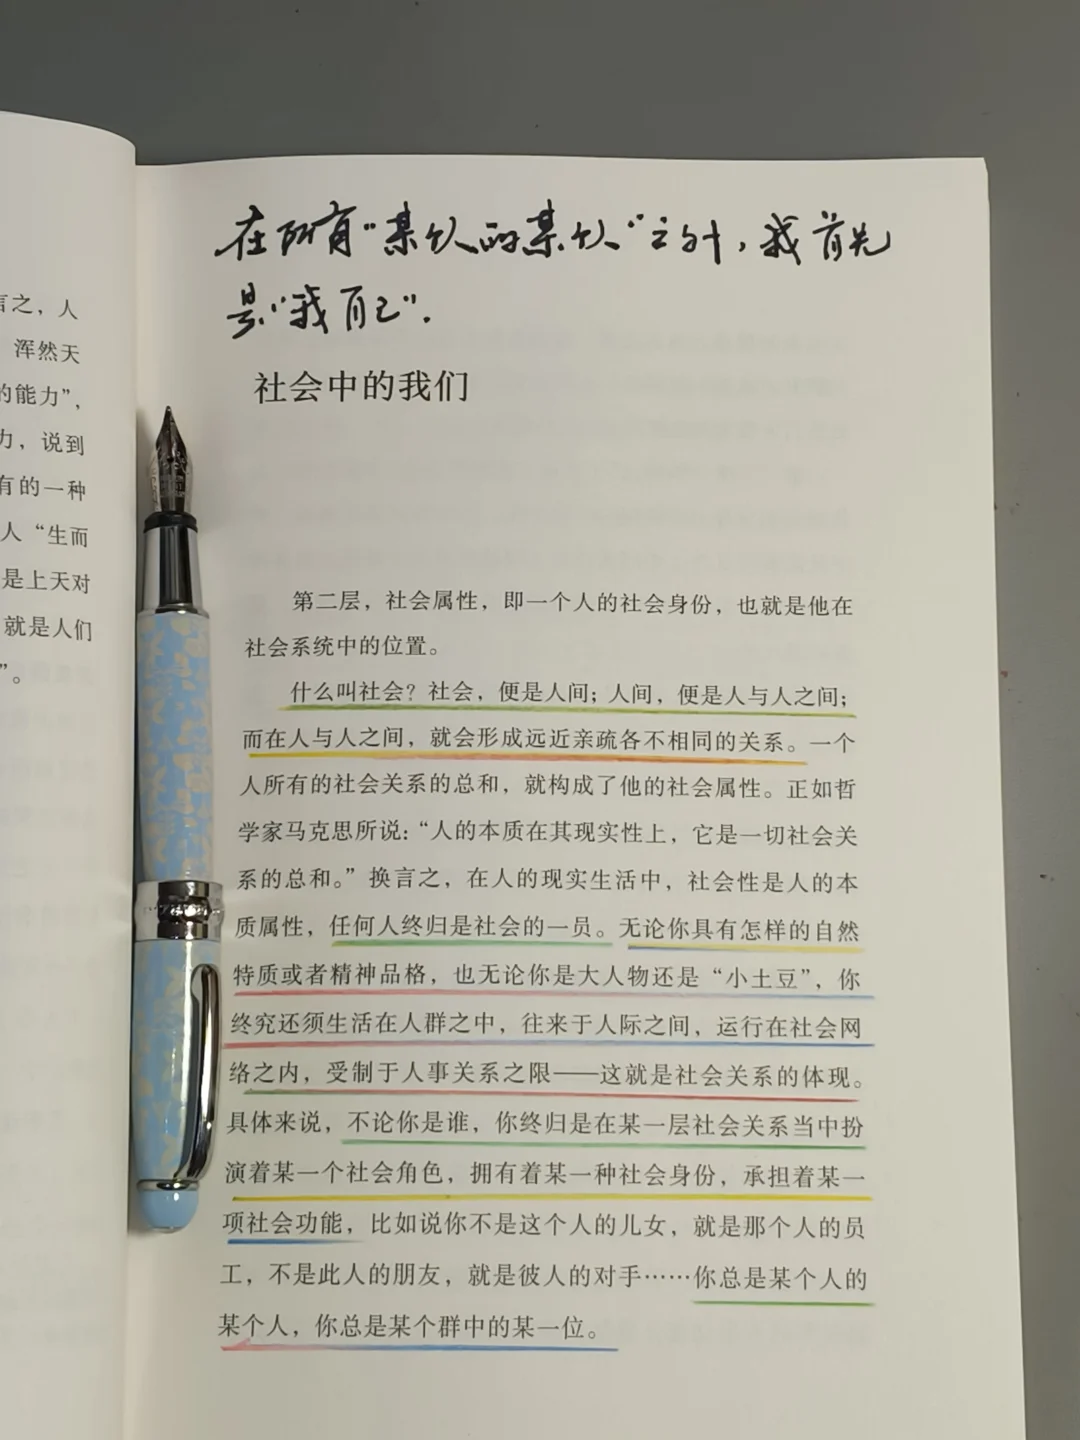 言之，人
浑然天
的能力”，
力，说到
有的一种
人“生而
是上天对
就是人们
”。
在所有“某个人的某个人”之外，我首先
是“我自己”.
社会中的我们
第二层，社会属性，即一个人的社会身份，也就是他在
社会系统中的位置。
什么叫社会？社会，便是人间；人间，便是人与人之间；
而在人与人之间，就会形成远近亲疏各不相同的关系。一个
人所有的社会关系的总和，就构成了他的社会属性。正如哲
学家马克思所说：“人的本质在其现实性上，它是一切社会关
系的总和。”换言之，在人的现实生活中，社会性是人的本
质属性，任何人终归是社会的一员。无论你具有怎样的自然
特质或者精神品格，也无论你是大人物还是“小土豆”，你
终究还须生活在人群之中，往来于人际之间，运行在社会网
络之内，受制于人事关系之限——这就是社会关系的体现。
具体来说，不论你是谁，你终归是在某一层社会关系当中扮
演着某一个社会角色，拥有着某一种社会身份，承担着某一
项社会功能，比如说你不是这个人的儿女，就是那个人的员
工，不是此人的朋友，就是彼人的对手……你总是某个人的
某个人，你总是某个群中的某一位。